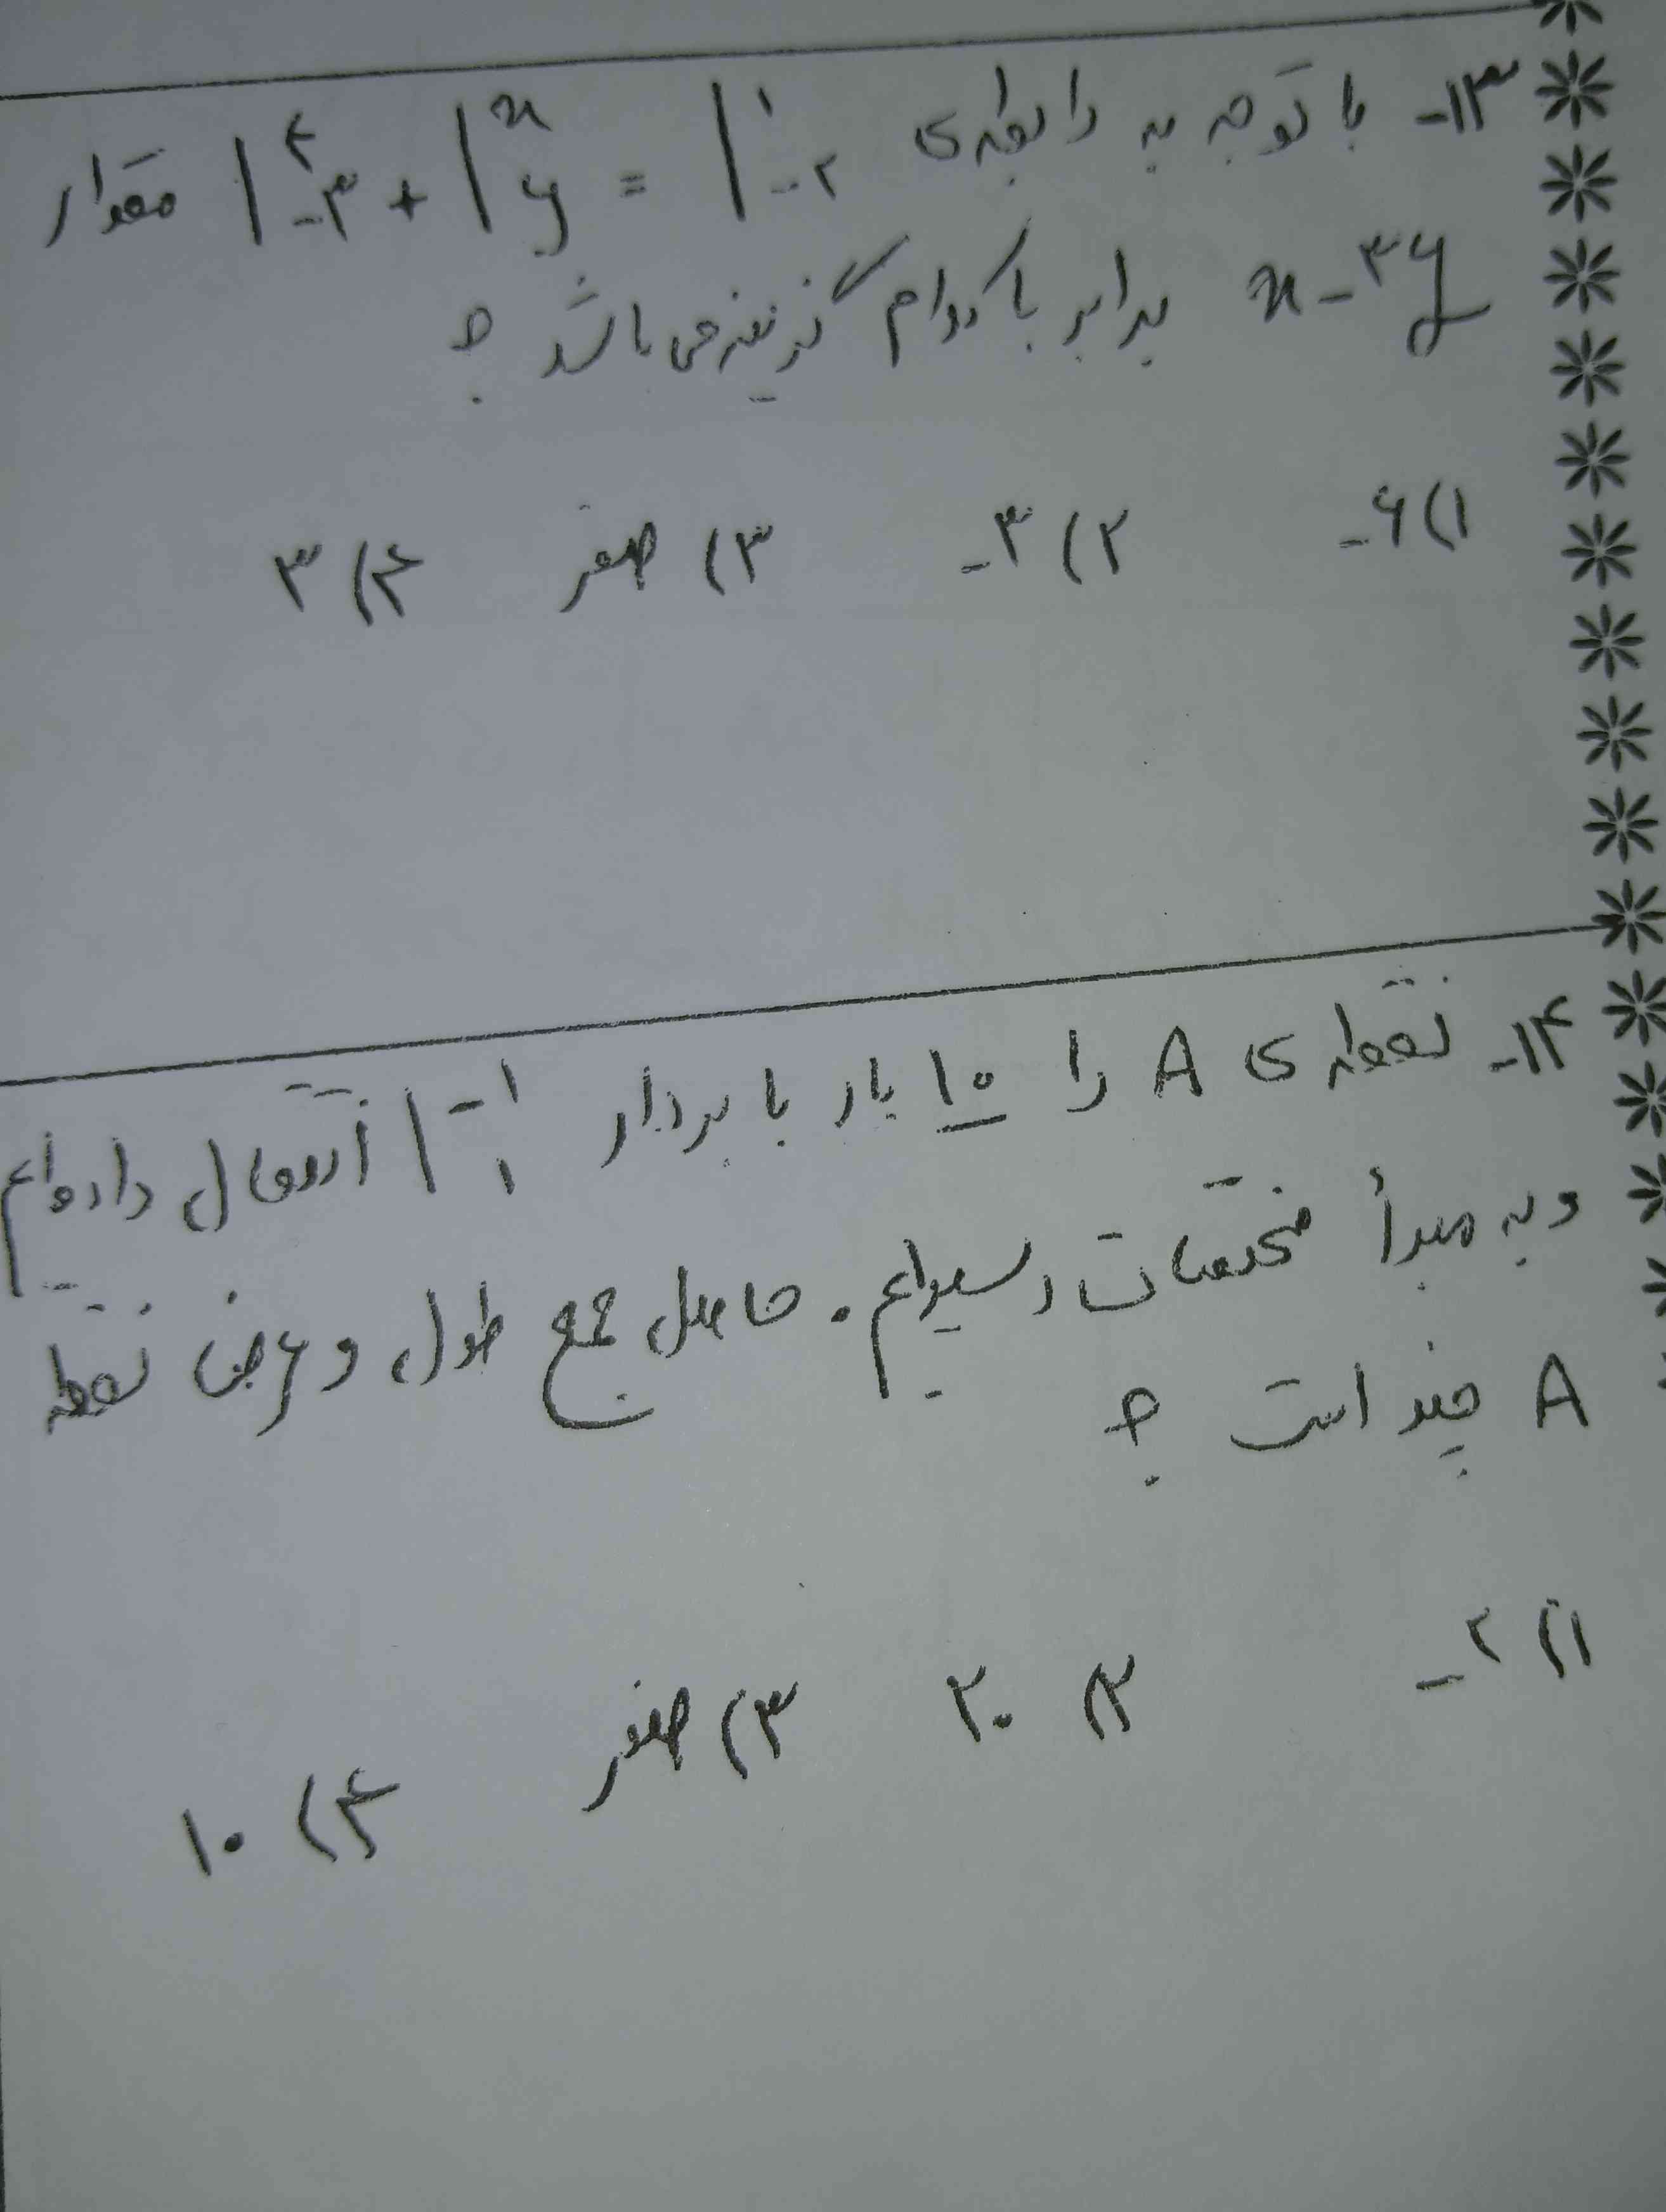 ۱۳- با توجه به رابطه‌ی |۱ -۲ = |x y + |۴ -۳ مقدار
x-۳y برابر با کدام گزینه می باشد ؟
۱) -۶ ۲) -۳ ۳) صفر ۴) ۳
۱۴- نقطه ی A را ۱۰ بار با بردار |-۱ ۱ انتقال داده‌ایم
و به مبدأ مختصات رسیده‌ایم. حاصل جمع طول و عرض نقطه
A چند است ؟
۱) -۲ ۲) ۲۰ ۳) صفر ۴) ۱۰